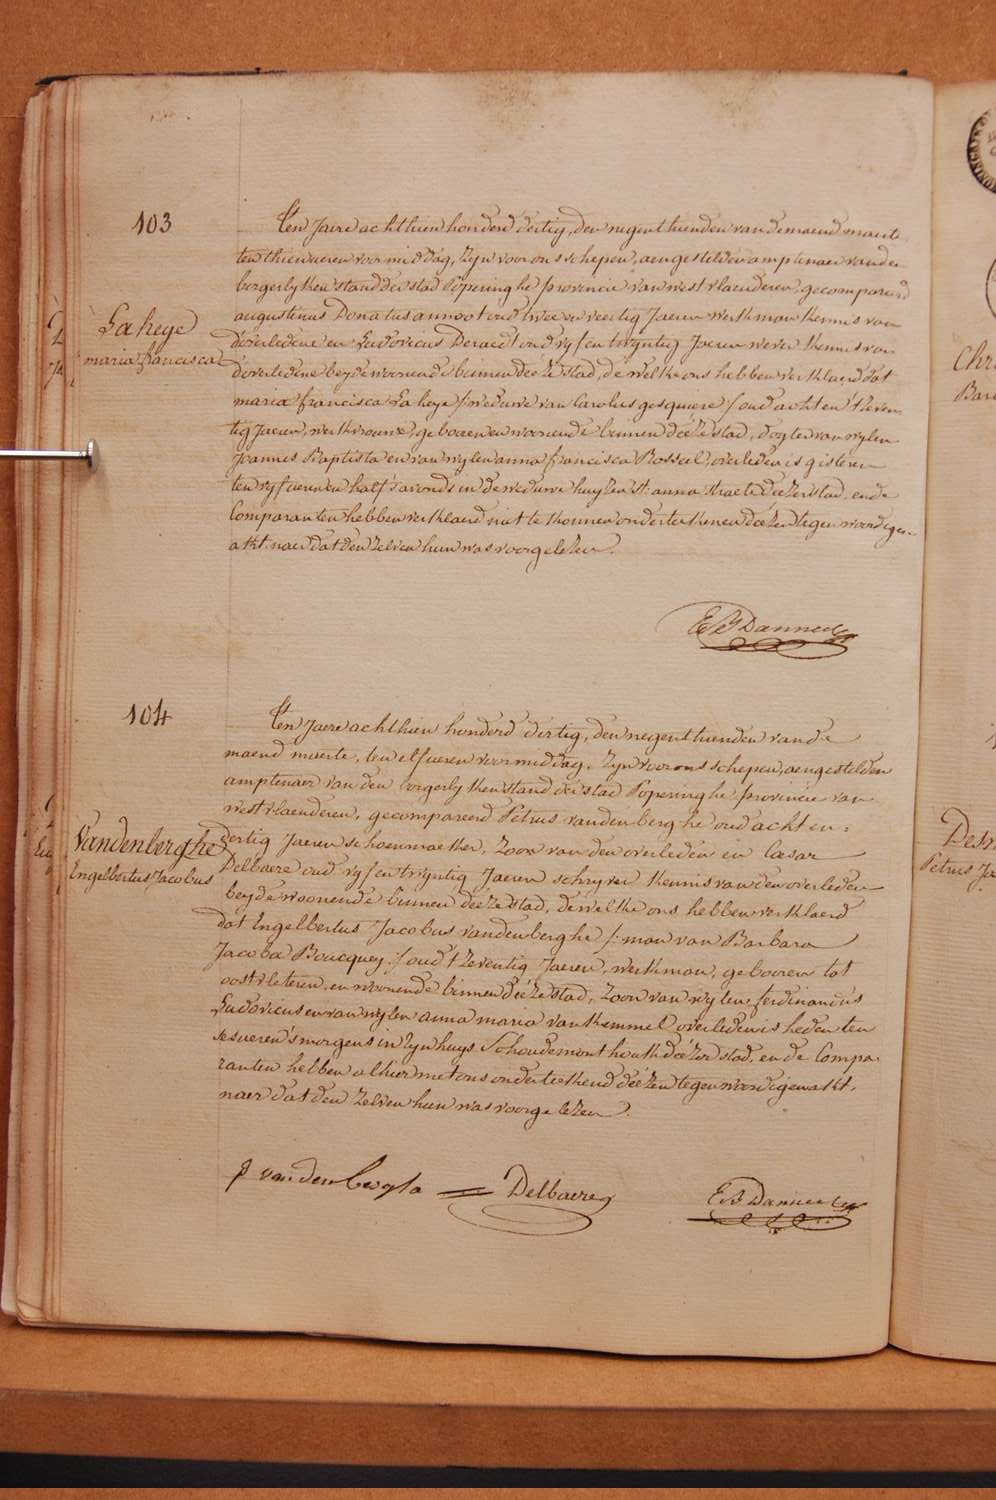 103
Ten Jaere achthien honderd dertig, den negenthienden van de maend maerte
ten thien ueren voormiddag, zyn voor ons schepen, aengestelden amptenaer van den
borgerlyken stand der stad Poperinghe provincie van westvlaenderen, gecompareerd
augustinus Donatus annoot oud twee en veertig Jaeren werkman kennis van
d'overledene en Ludovicus Deraedt oud vyf en twyntig Jaeren wever kennis van
d'overledene beyde woonende binnen deéze stad, de welke ons hebben verklaerd dat
Laheye
maria francisca
maria francisca Laheye /: weduwe van Carolus gesquiere / oud acht en tzeven-
tig Jaeren, werkvrouwe, gebooren en woonende binnen deéze stad, dogter van wylen
Joannes Baptista en van wylen anna francisca Bossel, overleden is gisteren
ten vyf ueren en half s'avonds in de weduwe huyzen St. anna straete deézer stad, en de
Comparanten hebben verklaerd niet te konnen onderteekenen deézen tegenwoordigen
akt, naer dat den zelven hun was voorgelezen.
E B Danneel
104
Ten Jaere achthien honderd dertig, den negenthienden van de
maend maerte, ten elf ueren voormiddag, zyn voor ons schepen, aengestelden
amptenaer van den borgerlyken stand der stad Poperinghe provincie van
westvlaenderen, gecompareerd Petrus vandenberghe oud acht en:
dertig Jaeren schoenmaeker, zoon van den overleden en Cæsar
Delbaere oud vyf en twyntig Jaeren schryver kennis van den overleden
Vandenberghe
Engelbertus Jacobus
beyde woonende binnen deéze stad, de welke ons hebben verklaerd
dat Engelbertus Jacobus vandenberghe /: man van Barbara
Jacoba Boucquey :/ oud tzeventig Jaeren, werkman, gebooren tot
oostvleteren, en woonende binnen deéze stad, zoon van wylen ferdinandus
Ludovicus en van wylen anna maria van kemmel overleden is heden ten
ses ueren s'morgens in zyn huys Schoudemonthouk deézer stad, en de Compa-
ranten hebben alhier met ons onderteekend deézen tegenwoordigen akt,
naer dat den zelven hun was voorgelezen.
P vandenberghe
Delbaere
E B Danneel